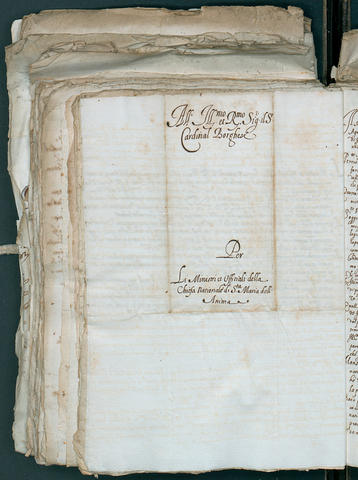 All Illmo et Rmo Sigr il Sr
Cardinal Borghese
Per
Li Ministri et Offitiali della
Chiesa Nationale di Sta Maria dell
Anima